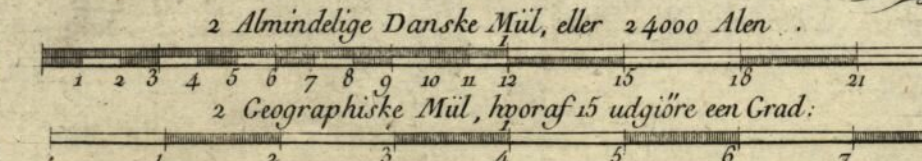 2 Almindelige Danske Mül, eller 24000 Alen .
1
1 2 3 4 5 6 7 8 9 10 11 12 15 18 21
2 Geographiske Mül, hvoraf 15 udgiöre een Grad:
1
1 2 3 4 5 6 7